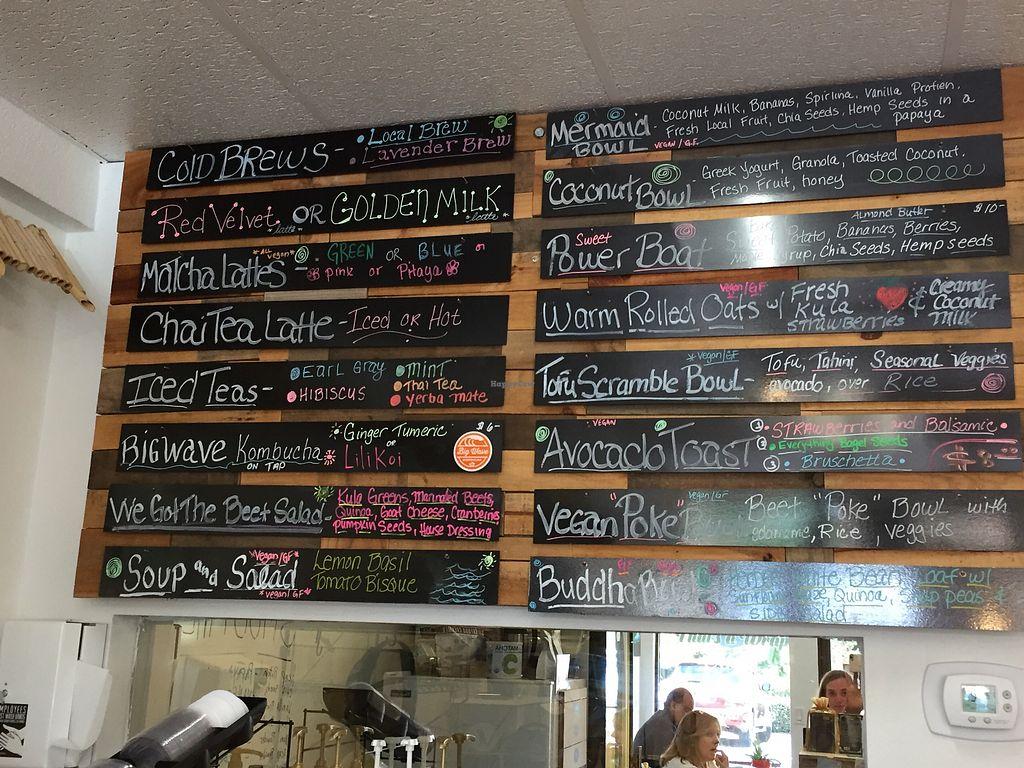 COLD BREWS- • Local Brew
• Lavender Brew
Red Velvet latte OR GOLDEN MILK latte
Matcha Lattes - *All vegan* GREEN OR BLUE or
pink or Pitaya
Chai Tea Latte - Iced OR Hot
Iced Teas- EARL GRAY MINT
HIBISCUS Thai Tea
Yerba mate
BIGWAVE Kombucha ON TAP Ginger Tumeric $6-
or
LiliKoi
Big Wave
We Got The Beet Salad Kula Greens, Marinated Beets,
Quinoa, Goat Cheese, Cranberries
Pumpkin Seeds, House Dressing
Soup and Salad *Vegan/GF* Lemon Basil
*vegan/GF* Tomato Bisque
Mermaid BOWL VEGAN/G.F. Coconut Milk, Bananas, Spirlina, Vanilla Protien,
Fresh Local Fruit, Chia Seeds, Hemp Seeds in a
papaya
Coconut Bowl Greek Yogurt, Granola, Toasted Coconut,
Fresh Fruit, honey
Sweet Power Boat Almond Butter $10-
Potato, Bananas, Berries,
Chia Seeds, Hemp seeds
Warm Rolled Oats w/ Vegan/GF Fresh Kula STRAWBERRIES & Creamy Coconut MILK
Tofu Scramble Bowl- *Vegan/GF Tofu, Tahini, Seasonal Veggies
avocado, over Rice
Avocado Toast VEGAN 1 • STRAWBERRIES and Balsamic •
2 • Everything Bagel Seeds
3 • Bruschetta •
Vegan "Poke" Vegan/GF Beet "Poke" Bowl with
edamame, Rice, veggies
Buddha GF
Quinoa,
MATCHA